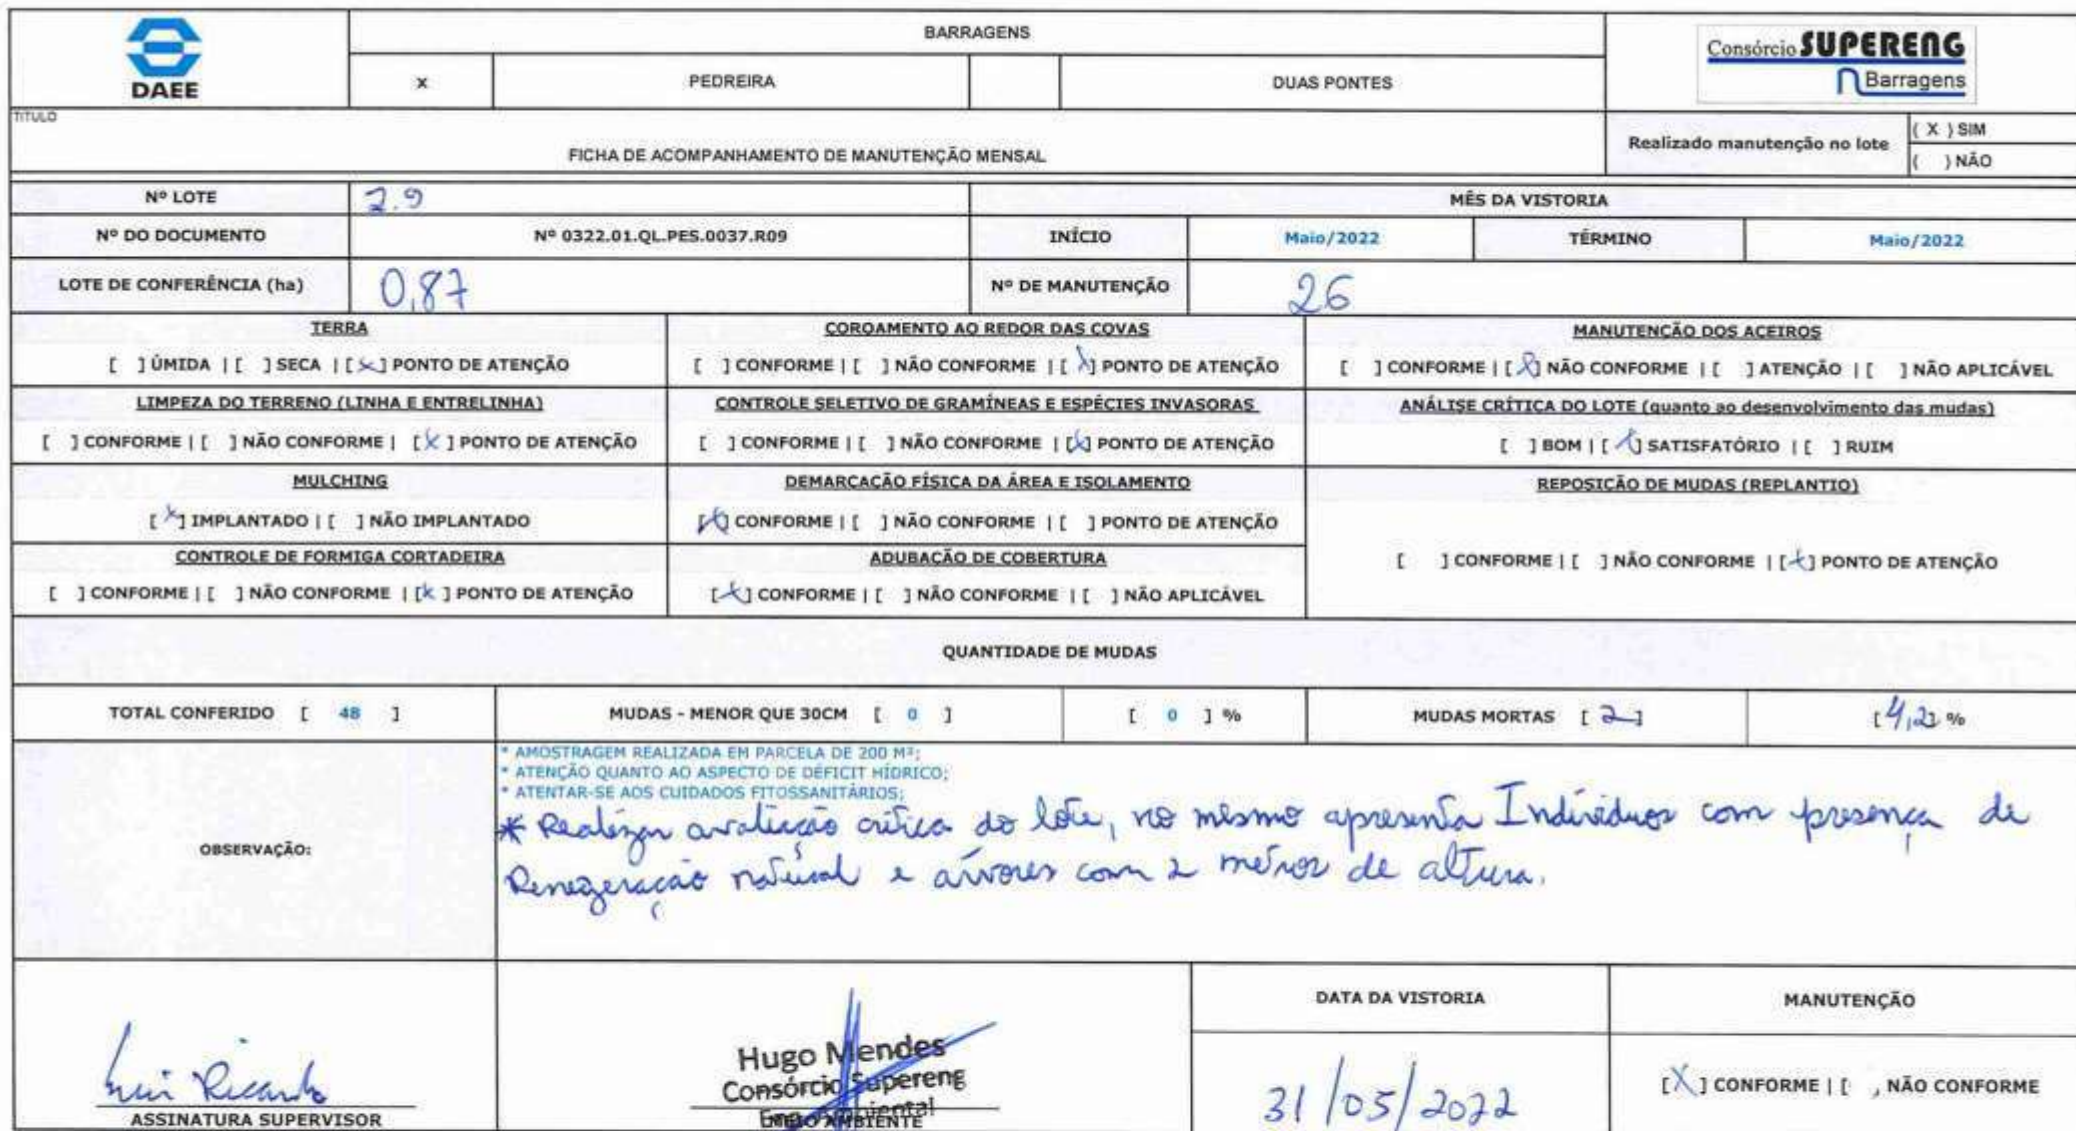 DAEE
BARRAGENS
X PEDREIRA DUAS PONTES
Consórcio SUPERENG
Barragens
TITULO
FICHA DE ACOMPANHAMENTO DE MANUTENÇÃO MENSAL
Realizado manutenção no lote
( X ) SIM
( ) NÃO
Nº LOTE 2.9
MÊS DA VISTORIA
Nº DO DOCUMENTO Nº 0322.01.QL.PES.0037.R09 INÍCIO Maio/2022 TÉRMINO Maio/2022
LOTE DE CONFERÊNCIA (ha) 0,87 Nº DE MANUTENÇÃO 26
TERRA
[ ] ÚMIDA | [ ] SECA | [x] PONTO DE ATENÇÃO
COROAMENTO AO REDOR DAS COVAS
[ ] CONFORME | [ ] NÃO CONFORME | [x] PONTO DE ATENÇÃO
MANUTENÇÃO DOS ACEIROS
[ ] CONFORME | [x] NÃO CONFORME | [ ] ATENÇÃO | [ ] NÃO APLICÁVEL
LIMPEZA DO TERRENO (LINHA E ENTRELINHA)
[ ] CONFORME | [ ] NÃO CONFORME | [x] PONTO DE ATENÇÃO
CONTROLE SELETIVO DE GRAMÍNEAS E ESPÉCIES INVASORAS
[ ] CONFORME | [ ] NÃO CONFORME | [x] PONTO DE ATENÇÃO
ANÁLISE CRÍTICA DO LOTE (quanto ao desenvolvimento das mudas)
[ ] BOM | [x] SATISFATÓRIO | [ ] RUIM
MULCHING
[x] IMPLANTADO | [ ] NÃO IMPLANTADO
DEMARCAÇÃO FÍSICA DA ÁREA E ISOLAMENTO
[x] CONFORME | [ ] NÃO CONFORME | [ ] PONTO DE ATENÇÃO
REPOSIÇÃO DE MUDAS (REPLANTIO)
[ ] CONFORME | [ ] NÃO CONFORME | [x] PONTO DE ATENÇÃO
CONTROLE DE FORMIGA CORTADEIRA
[ ] CONFORME | [ ] NÃO CONFORME | [x] PONTO DE ATENÇÃO
ADUBAÇÃO DE COBERTURA
[x] CONFORME | [ ] NÃO CONFORME | [ ] NÃO APLICÁVEL
QUANTIDADE DE MUDAS
TOTAL CONFERIDO [ 48 ] MUDAS - MENOR QUE 30CM [ 0 ] [ 0 ] % MUDAS MORTAS [ 2 ] [ 4,2 ] %
OBSERVAÇÃO:
* AMOSTRAGEM REALIZADA EM PARCELA DE 200 M²;
* ATENÇÃO QUANTO AO ASPECTO DE DÉFICIT HÍDRICO;
* ATENTAR-SE AOS CUIDADOS FITOSSANITÁRIOS;
* Realizar avaliação crítica do lote, no mesmo apresenta Indivíduos com presença de
Renegeração natural e árvores com 2 metros de altura.
Luis Ricardo
ASSINATURA SUPERVISOR
Hugo Mendes
Consórcio Supereng
Eng. Ambiental
MEIO AMBIENTE
DATA DA VISTORIA
31/05/2022
MANUTENÇÃO
[X] CONFORME | [ , NÃO CONFORME